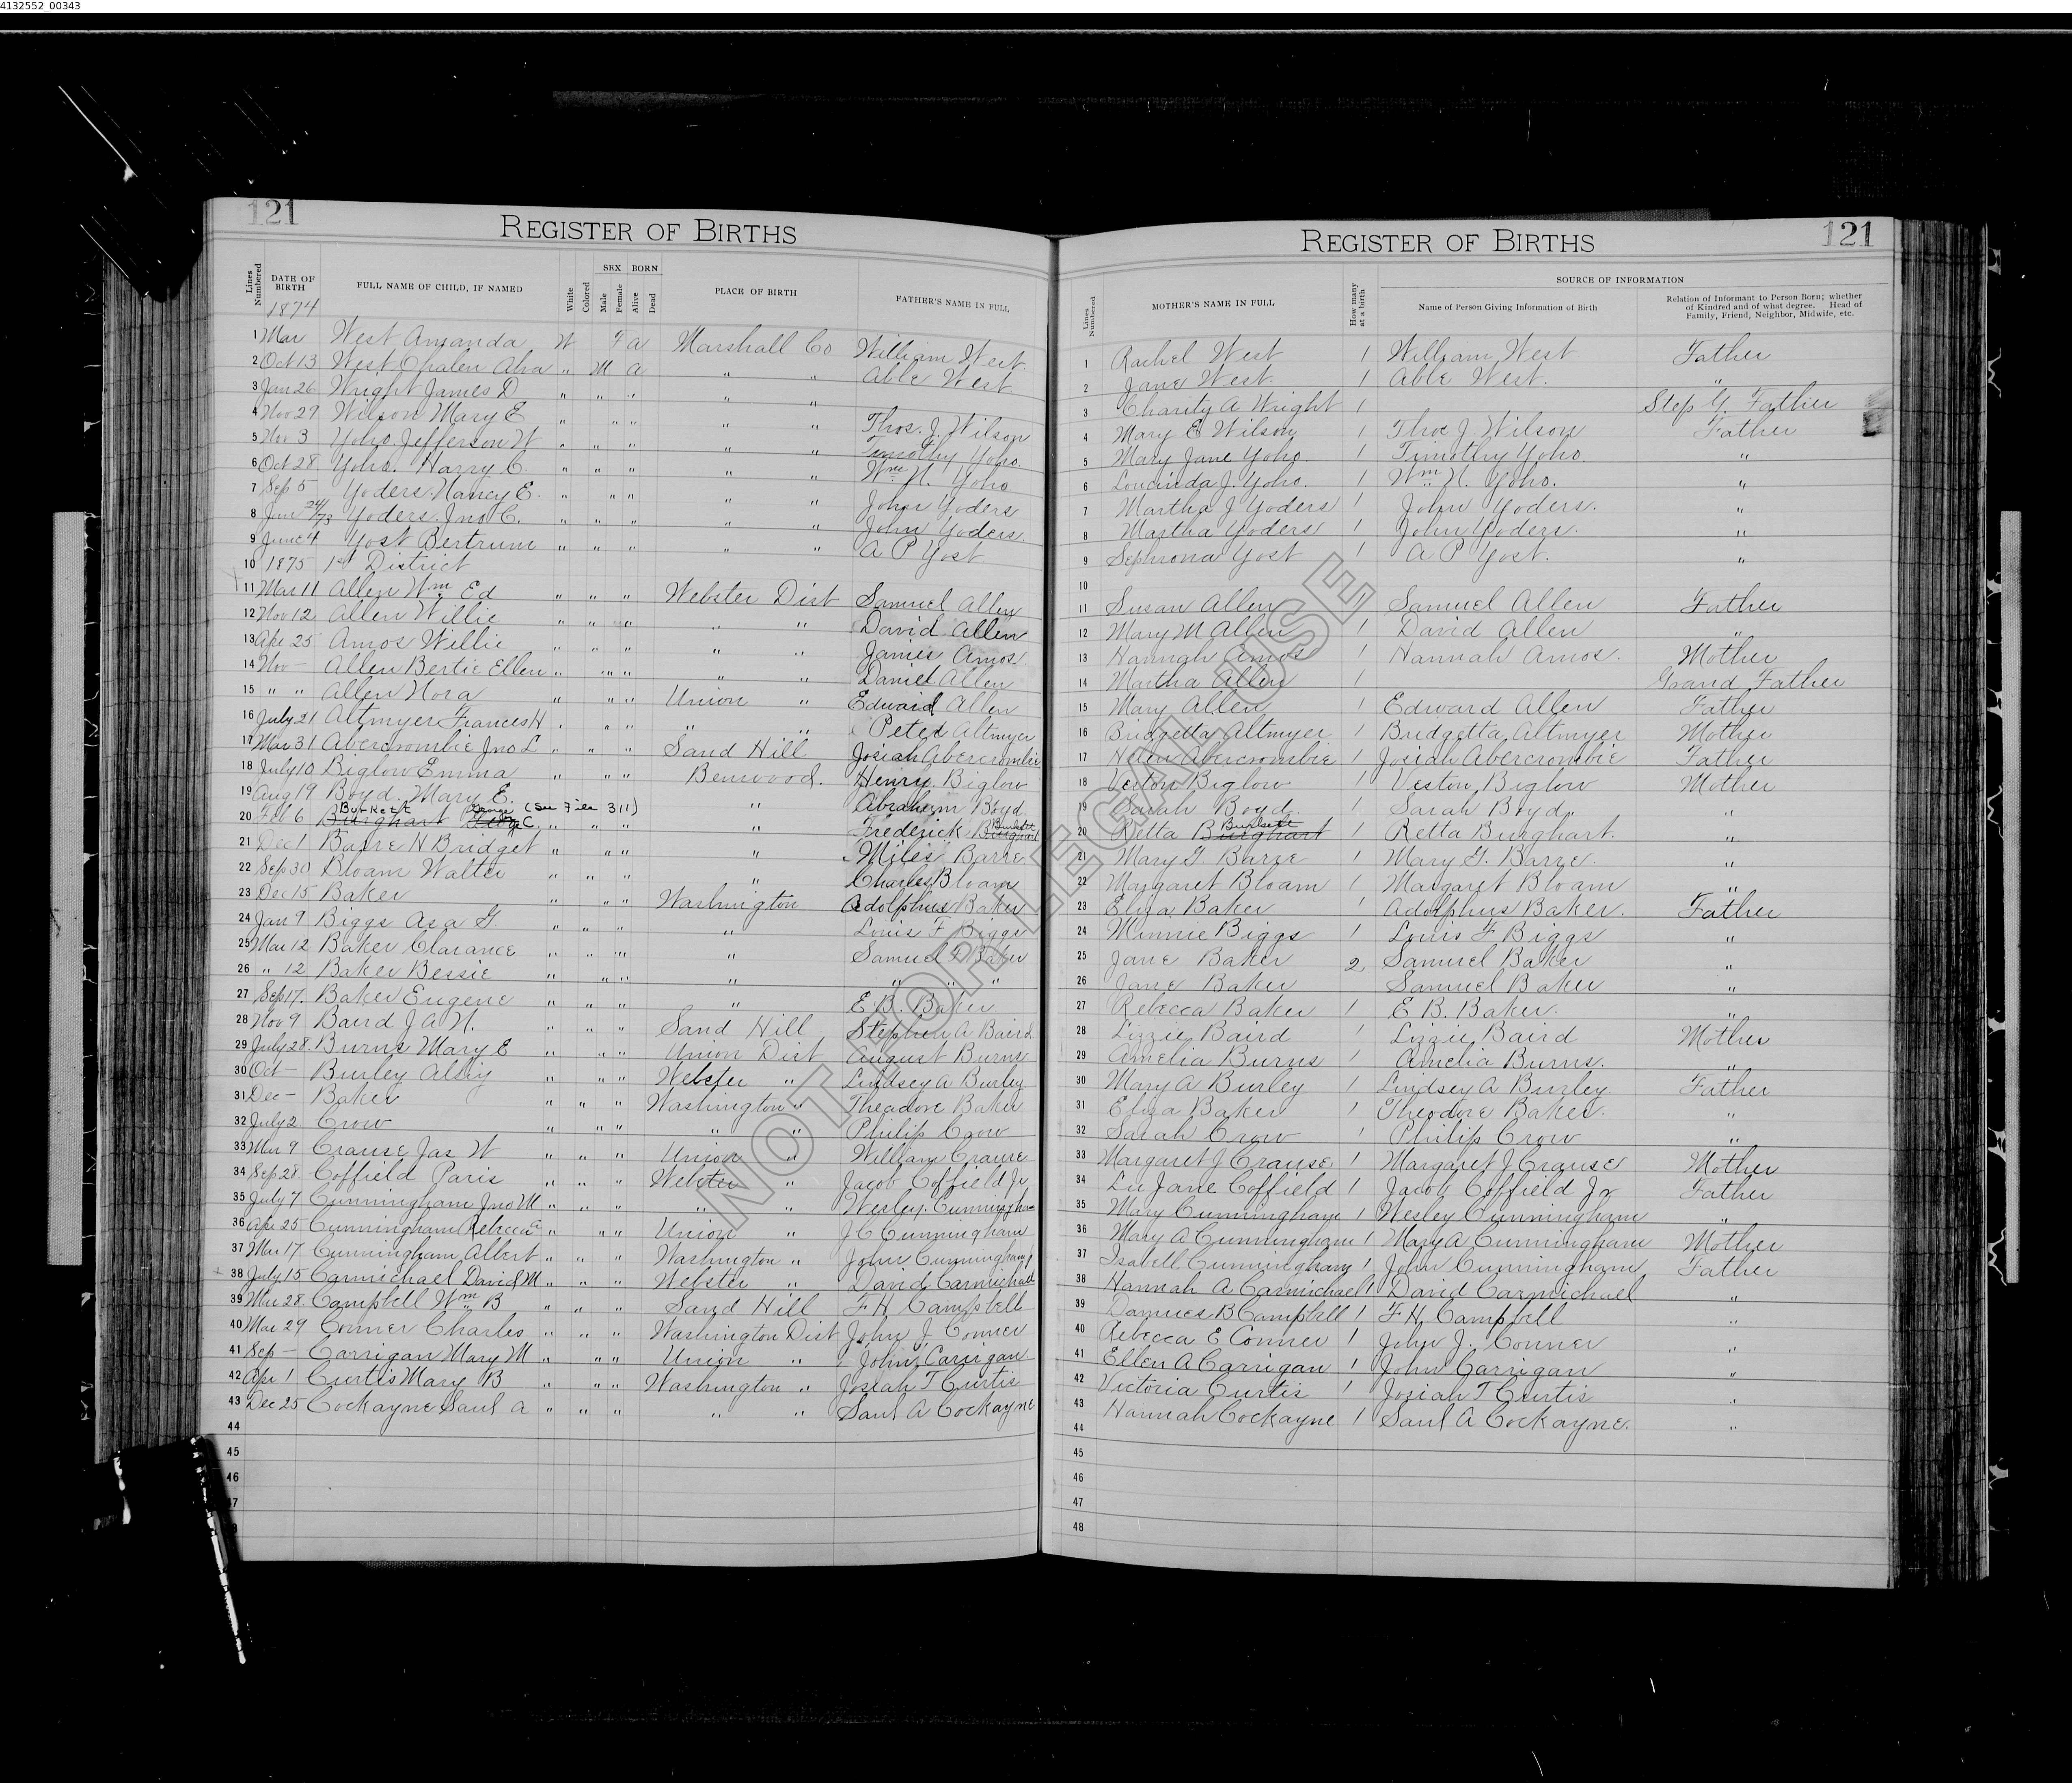 4132552_00343
121
REGISTER OF BIRTHS
Lines Numbered DATE OF BIRTH FULL NAME OF CHILD, IF NAMED White Colored SEX Male Female BORN Alive Dead PLACE OF BIRTH FATHER'S NAME IN FULL
1874
1 Mar West Amanda W F a Marshall Co William West
2 Oct 13 West Opalen Alva " M a " " Able West
3 Jan 26 Wright James D " " " " "
4 Nov 27 Wilson Mary E " " " " " Thos. J. Wilson
5 Nov 3 Yoho. Jefferson W " " " " " Timothy Yoho.
6 Oct 28 Yoho. Harry C. " " " " " Wm N. Yoho
7 Sep 5 Yoders. Nancy E. " " " " " John Yoders
8 Jun 24/73 Yoders. Jno C. " " " " " John Yoders.
9 June 4 Yost Bertrum " " " " " A P Yost
10 1875 1st District
11 Mar 11 Allen Wm Ed " " " Webster Dist Samuel Allen
12 Nov 12 Allen Willie " " " " " David Allen
13 Apr 25 Amos Willie " " " " " James Amos
14 Nov — Allen Bertie Ellen " " " " " Daniel Allen
15 " " Allen Nora " " " Union " Edward Allen
16 July 21 Altmyer Frances H " " " " " Peter Altmyer
17 Mar 31 Abercrombie Jno L " " " Sand Hill Josiah Abercrombie
18 July 10 Biglow Emma " " " Benwood. Henry Biglow
19 Aug 19 Boyd. Mary E. " Abraham Boyd.
20 Feb 6 Burghart Burkett George C (See File 311) " " " " Frederick Burghart Burkett
21 Dec 1 Barre N Bridget " " " " Miles Barre
22 Sep 30 Bloam Walter " " " " Charles Bloam
23 Dec 15 Baker " " " Washington Adolphus Baker
24 Jan 9 Biggs Asa G. " " " " Louis F Biggs
25 Mar 12 Baker Clarance " " " " Samuel Baker
26 " 12 Baker Bessie " " " " " " "
27 Sep 17. Baker Eugene " " " " E. B. Baker
28 Nov 9 Baird J A N. " " " Sand Hill Stephen A Baird
29 July 28. Burns Mary E " " " Union Dist August Burns
30 Oct — Burley Alsiy " " " Webster " Lindsey A Burley
31 Dec — Baker " " " Washington " Theadore Baker
32 July 2 Crow " " " " " Philip Crow
33 Mar 9 Crause Jas W " " " Union " William Crause
34 Sep 28. Coffield Paris " " " Webster " Jacob Coffield Jr
35 July 7 Cunningham Jno M " " " " " Wesley. Cunningham
36 Apr 25 Cunningham Rebecca " " " Union " J C Cunningham
37 Mar 17 Cunningham Albert " " " Washington " John Cunningham
38 July 15 Carmichael David M " " " Webster " David Carmichael
39 Mar 28. Campbell Wm B " " " Sand Hill F H Campbell
40 Mar 29 Conner Charles " " " Washington Dist John J Conner
41 Sep — Carrigan Mary M " " " Union " John Carrigan
42 Apr 1 Curtis Mary B " " " Washington " Josiah T Curtis
43 Dec 25 Cockayne Saul A " " " " " Saul A Cockayne
44
45
46
121
REGISTER OF BIRTHS
Lines Numbered MOTHER'S NAME IN FULL How many at a birth SOURCE OF INFORMATION
Name of Person Giving Information of Birth Relation of Informant to Person Born; whether of Kindred and of what degree. Head of Family, Friend, Neighbor, Midwife, etc.
1 Rachel West 1 William West Father
2 Jane West. 1 Able West. "
3 Charity A Wright 1 Step G. Father
4 Mary E Wilson 1 Thos J. Wilson Father
5 Mary Jane Yoho. 1 Timothy Yoho. "
6 Loucinda J. Yoho. 1 Wm N. Yoho. "
7 Martha J Yoders 1 John Yoders. "
8 Martha Yoders 1 John Yoders. "
9 Sephrona Yost 1 A P Yost. "
10
11 Susan Allen 1 Samuel Allen Father
12 Mary M Allen 1 David Allen "
13 Hannah Amos 1 Hannah Amos. Mother
14 Martha Allen 1 Grand Father
15 Mary Allen 1 Edward Allen Father
16 Bridgetta Altmyer 1 Bridgetta Altmyer Mother
17 Helen Abercrombie 1 Josiah Abercrombie Father
18 Veston Biglow 1 Veston Biglow Mother
19 Sarah Boyd. 1 Sarah Boyd. "
20 Retta Burghart Burkett 1 Retta Burghart. "
21 Mary G. Barre 1 Mary G. Barre. "
22 Margaret Bloam 1 Margaret Bloam "
23 Eliza Baker 1 Adolphus Baker. Father
24 Minnie Biggs 1 Louis F Biggs "
25 Jane Baker 2 Samuel Baker "
26 Jane Baker Samuel Baker "
27 Rebecca Baker 1 E B. Baker. "
28 Lizzie Baird 1 Lizzie Baird Mother
29 Amelia Burns 1 Amelia Burns. "
30 Mary A Burley 1 Lindsey A Burley Father
31 Eliza Baker 1 Theodore Baker. "
32 Sarah Crow 1 Philip Crow "
33 Margaret J Crause 1 Margaret J Crause Mother
34 Lu Jane Coffield 1 Jacob Coffield Jr Father
35 Mary Cunningham 1 Wesley Cunningham "
36 Mary A Cunningham 1 Mary A Cunningham Mother
37 Isabell Cunningham 1 John Cunningham Father
38 Hannah A Carmichael 1 David Carmichael "
39 B Campbell 1 F H Campbell "
40 Rebecca E Conner 1 John J. Conner "
41 Ellen A Carrigan 1 John Carrigan "
42 Victoria Curtis 1 Josiah T Curtis "
43 Hannah Cockayne 1 Saul A Cockayne. "
44
45
46
47
48
NOT FOR LEGAL USE